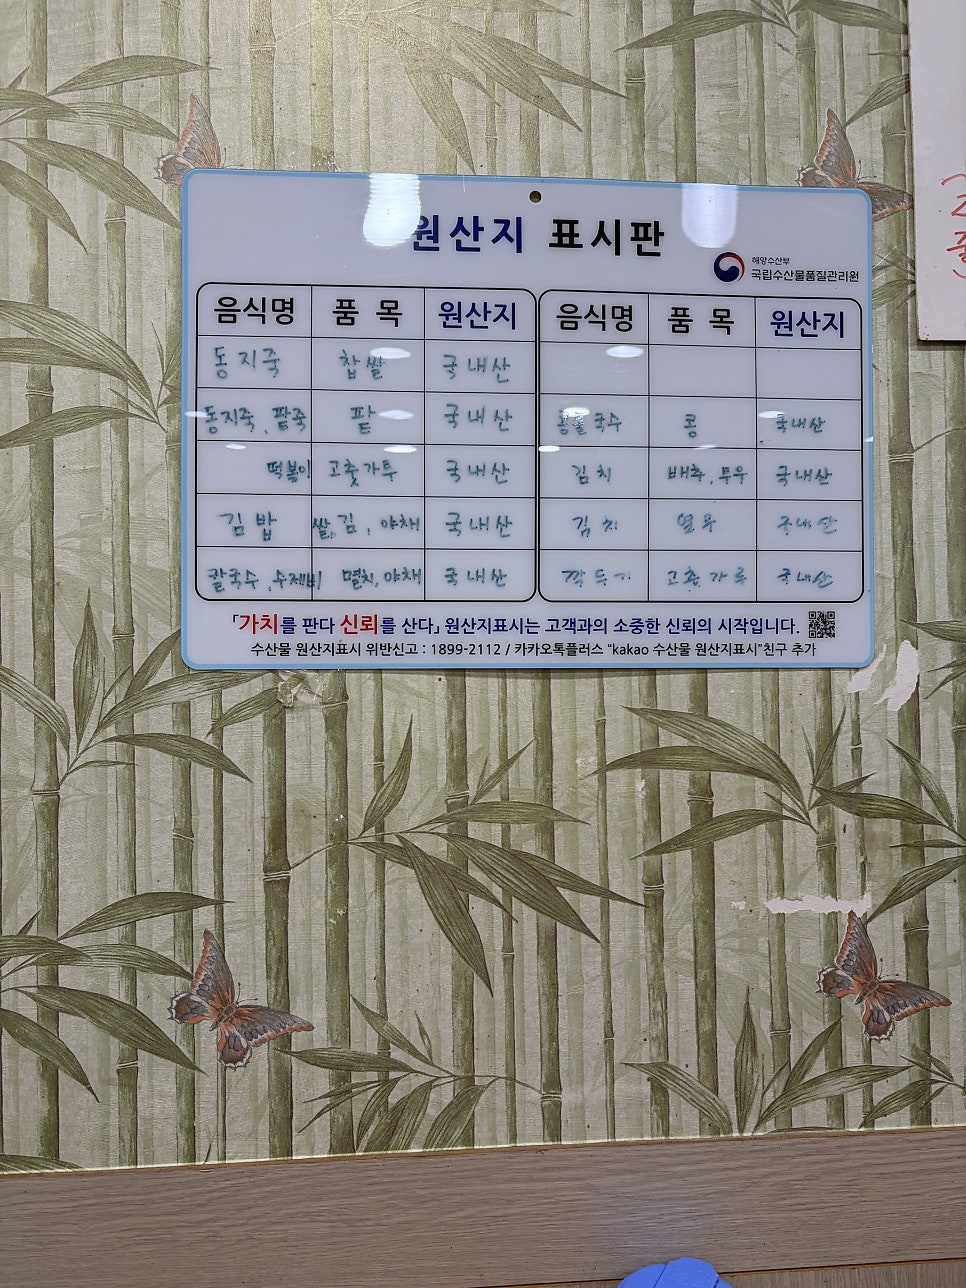 원산지 표시판
해양수산부
국립수산물품질관리원
음식명 품 목 원산지 음식명 품 목 원산지
동지죽 찹쌀 국내산
동지죽, 팥죽 팥 국내산 콩물국수 콩 국내산
떡볶이 고춧가루 국내산 김치 배추, 무우 국내산
김밥 쌀, 김, 야채 국내산 김치 열무 국내산
칼국수, 수제비 멸치, 야채 국내산 깍두기 고춧가루 국내산
「가치를 판다 신뢰를 산다」 원산지표시는 고객과의 소중한 신뢰의 시작입니다.
수산물 원산지표시 위반신고 : 1899-2112 / 카카오톡플러스 "kakao 수산물 원산지표시"친구 추가